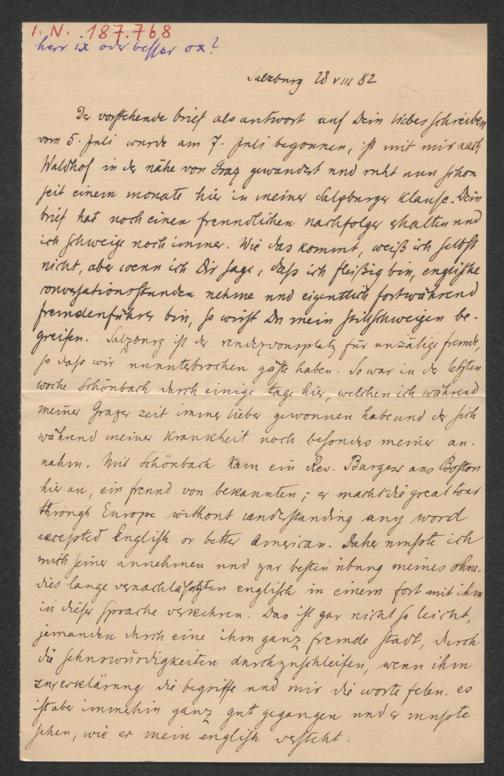 I. N. 187.768
herr ix oder besser ox?
Salzburg 28 VIII 82
Der vorstehende brief als antwort auf Dein liebes schreiben
vom 5. Juli wurde am 7. Juli begonnen, ist mit mir nach
Waldhof in der nähe von Graz gewandert und ruht nun schon
seit einem monate hier in meiner Salzburger Klause. Dein
brief hat noch einen freundlichen nachfolger erhalten und
ich schweige noch immer. Wie das kommt, weiß ich selbst
nicht, aber wenn ich Dir sage, daß ich fleißig bin, englische
conversationsstunden nehme und eigentlich fortwährend
fremdenführer bin, so wirst Du mein stillschweigen be-
greifen. Salzburg ist der rendezvousplatz für unzälige fremde,
so daß wir ununterbrochen gäste haben. So war in der letzten
woche Schönbach durch einige tage hier, welchen ich während
meiner Grazer zeit immer lieber gewonnen habe und der sich
während meiner Krankheit noch besonders meiner an-
nahm. Mit Schönbach kam ein Rev. Burgess aus Boston
hier an, ein freund von bekannten; er macht die great tour
through Europe without understanding any word
excepted English or better American. Daher mußte ich
mich seiner annehmen und zur besten übung meines ohne-
dies lange vernachläßigten englisch in einem fort mit ihm
in dieser sprache verkehren. Das ist gar nicht so leicht,
jemanden durch eine ihm ganz fremde stadt, durch
die sehnswürdigkeiten durchzuschleifen, wenn ihm
zur erklärung die begriffe und mir die worte felen. es
ist aber immerhin ganz gut gegangen und er mußte
sehen, wie er mein englisch versteht.